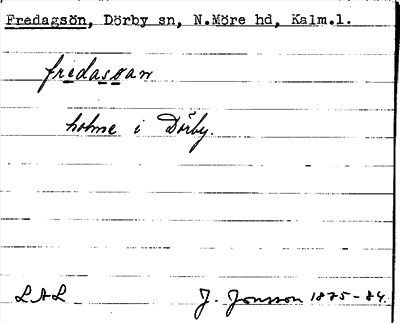 Fredagsön, Dörby sn, N.Möre hd, Kalm.l.
fredasøan
holme i Dörby.
LAL J. Jonsson 1875-84.